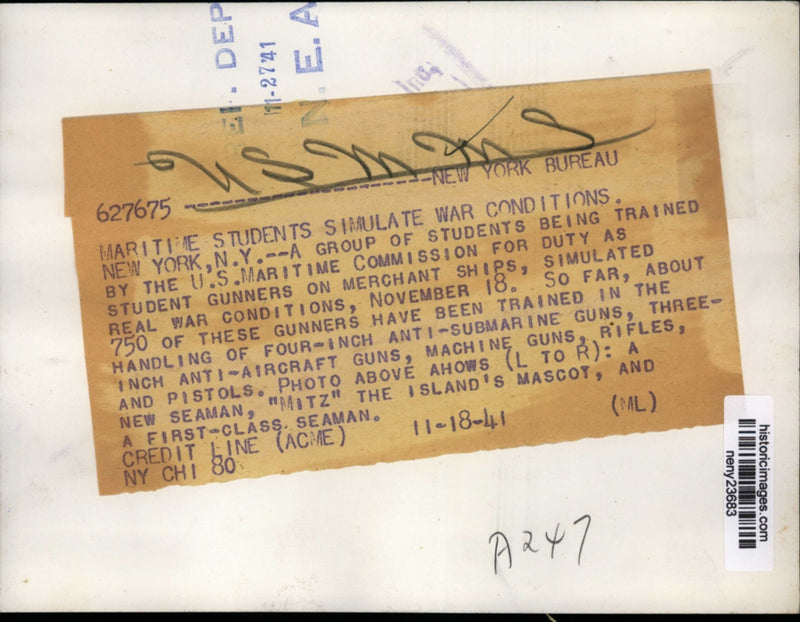 DEP
11-27 41
N.E.A
Inc,
NEW YORK BUREAU
627675
MARITIME STUDENTS SIMULATE WAR CONDITIONS.
NEW YORK, N.Y.--A GROUP OF STUDENTS BEING TRAINED
BY THE U.S.MARITIME COMMISSION FOR DUTY AS
STUDENT GUNNERS ON MERCHANT SHIPS, SIMULATED
REAL WAR CONDITIONS, NOVEMBER 18. SO FAR, ABOUT
750 OF THESE GUNNERS HAVE BEEN TRAINED IN THE
HANDLING OF FOUR-INCH ANTI-SUBMARINE GUNS, THREE-
INCH ANTI-AIRCRAFT GUNS, MACHINE GUNS, RIFLES,
AND PISTOLS. PHOTO ABOVE AHOWS (L TO R): A
NEW SEAMAN, "MITZ" THE ISLAND'S MASCOT, AND
A FIRST-CLASS SEAMAN.
CREDIT LINE (ACME) 11-18-41 (ML)
NY CHI 80
A247
historicimages.com
neny23683